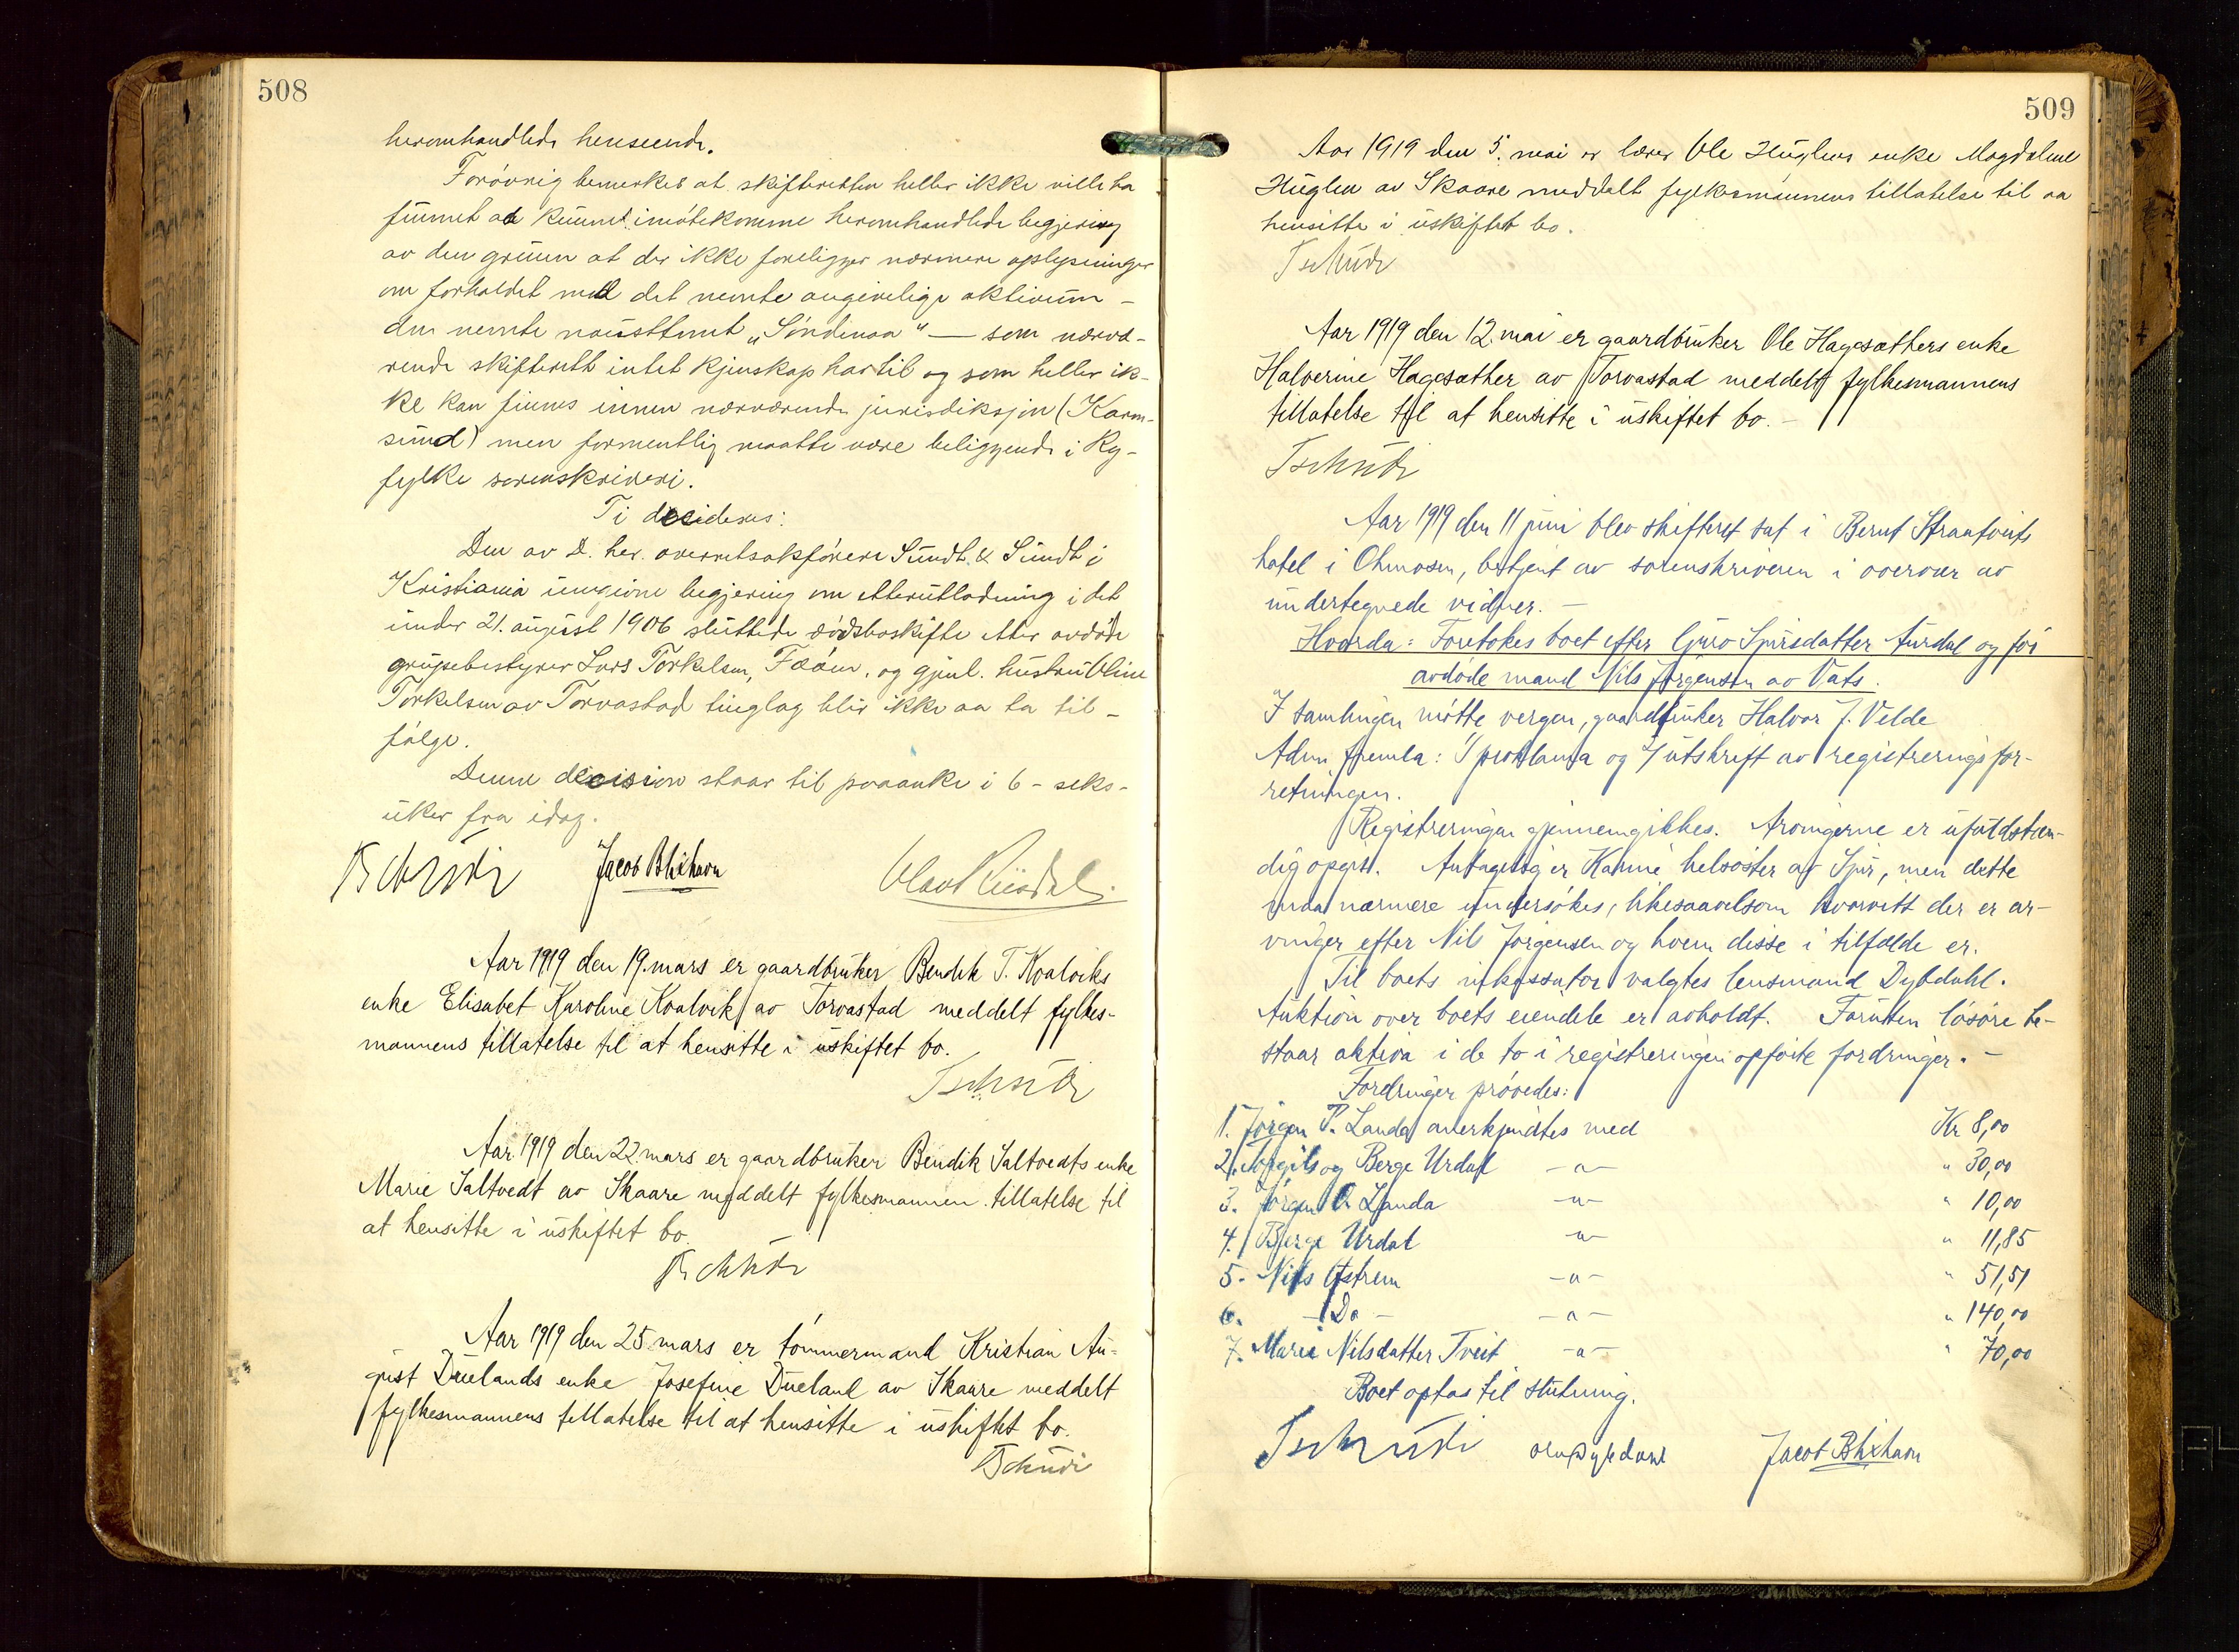 508
heromhandlede henseende.
Forøvrig bemerkes at skifteretten heller ikke ville ha
funnet at kunnet imøtekomme heromhandlede begjering
av den grunn at der ikke foreligger nærmere oplysninger
om forholdet med det nevnte angivelige aktivum –
den nevnte „Søndenaa" — som nærvæ-
rende skifterett intet kjenskap har til og som heller ik-
ke kan finnes innen nærværende jurisdiksjon (Karm-
sund) men formentlig maatte være beliggende i Ry-
fylke sorenskriveri.
Ti decideres:
Den av D. her. overretsakførere Sundt & Sundt i
Kristiania inngivne begjering om etterutlodning i det
under 21. august 1906 sluttede dødsboskifte etter avdøde
grubebestyrer Lars Torkelsen, Fæøen, og gjenl. hustru Oline
Torkelsen av Torvastad tinglag blir ikke aa ta til –
følge.
Denne decision staar til paaanke i 6 – seks –
uker fra idag.
Tschudi Jacob Blikhavn Olav Riisdal.
Aar 1919 den 19. mars er gaardbruker Bendik T. Kvalviks
enke Elisabet Karoline Kvalvik av Torvastad meddelt fylkes-
mannens tillatelse til at hensitte i uskiftet bo.
Tschudi
Aar 1919 den 22. mars er gaardbruker Bendik Saltvedts enke
Marie Saltvedt av Skaare meddelt fylkesmannen tillatelse til
at hensitte i uskiftet bo.
Tschudi
Aar 1919 den 25. mars er tømmermand Kristian Au-
gust Duelands enke Josefine Dueland av Skaare meddelt
fylkesmannens tillatelse til at hensitte i uskiftet bo.
Tschudi
509
Aar 1919 den 5. mai er lærer Ole Huglens enke Magdalene
Huglen av Skaare meddelt fylkesmannens tillatelse til aa
hensitte i uskiftet bo.
Tschudi
Aar 1919 den 12. mai er gaardbruker Ole Hagesæthers enke
Halverine Hagesæther av Torvastad meddelt fylkesmannens
tillatelse til at hensitte i uskiftet bo. –
Tschudi
Aar 1919 den 11 juni blev skifteret sat i Bernt Straatveits
hotel i Ølmosen, betjent av sorenskriveren i overvær av
undertegnede vidner. –
Hvorda: Foretokes boet efter Guro Spirsdatter Aurdal og før
avdøde mand Nils Jørgensen av Vats.
I samlingen møtte vergen, gaardbruker Halvor J. Velde
Adm. fremla: 1/ proklama og 2/ utskrift av registreringsfor-
retningen.
Registreringen gjennemgikkes. Arvingerne er ufuldstæn-
dig opgit. Antagelig er Karine helsøster av Spir, men dette
maa nærmere undersøkes, likesaavelsom hvorvitt der er ar-
vinger efter Nils Jørgensen og hvem disse i tilfælde er.
Til boets inkassator valgtes lensmand Dybdahl.
Auktion over boets eiendele er avholdt. Foruten løsøre be-
staar aktiva i de to i registreringen opførte fordringer. –
Fordringer prøvedes:
1. Jørgen P. Landa anerkjendtes med Kr 8,00
2. og Berge Urdal –"– " 30,00
3. Jørgen O. Landa –"– " 10,00
4. Berge Urdal –"– " 11,85
5. Nils Østrem –"– " 51,51
6. – Do – –"– " 140,00
7. Marie Nilsdatter Tveit –"– " 70,00
Boet optas til slutning.
Tschudi Olu Dybdahl Jacob Blikhavn